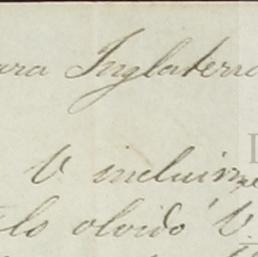 ara Inglaterra
V incluirme
lo olvidó V.